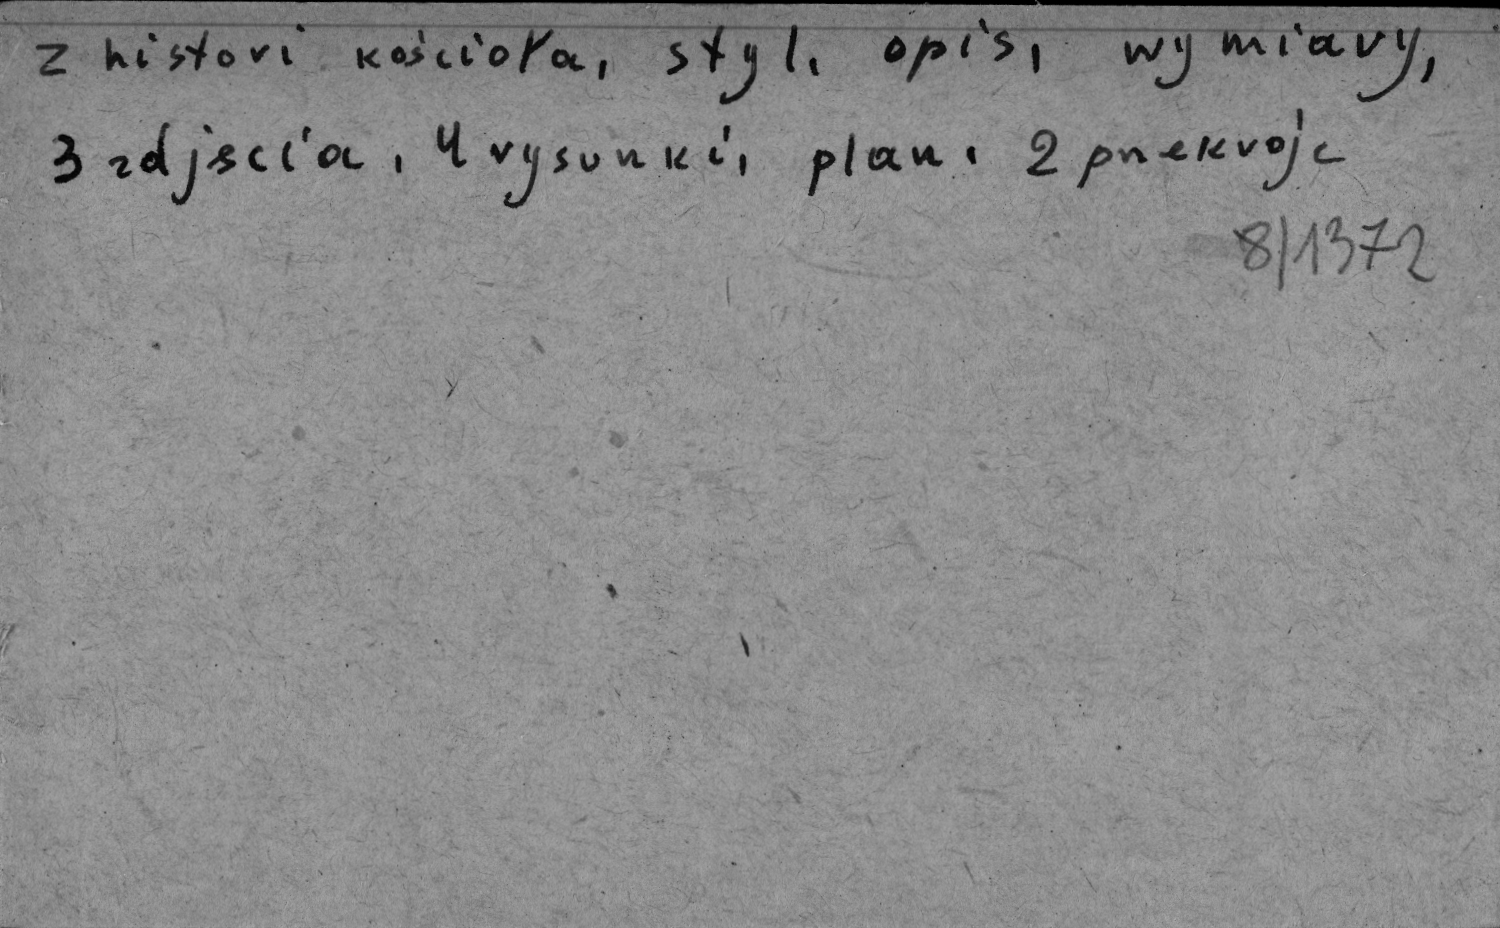 z histori kościoła, styl, opis, wymiary,
3 zdjęcia, 4 rysunki, plan, 2 przekroje
8/1372